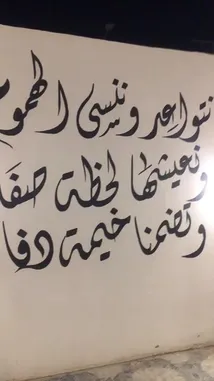 نتواعد وننسى الهموم
ونعيشها لحظة صفا
وتضمنا خيمة دفا